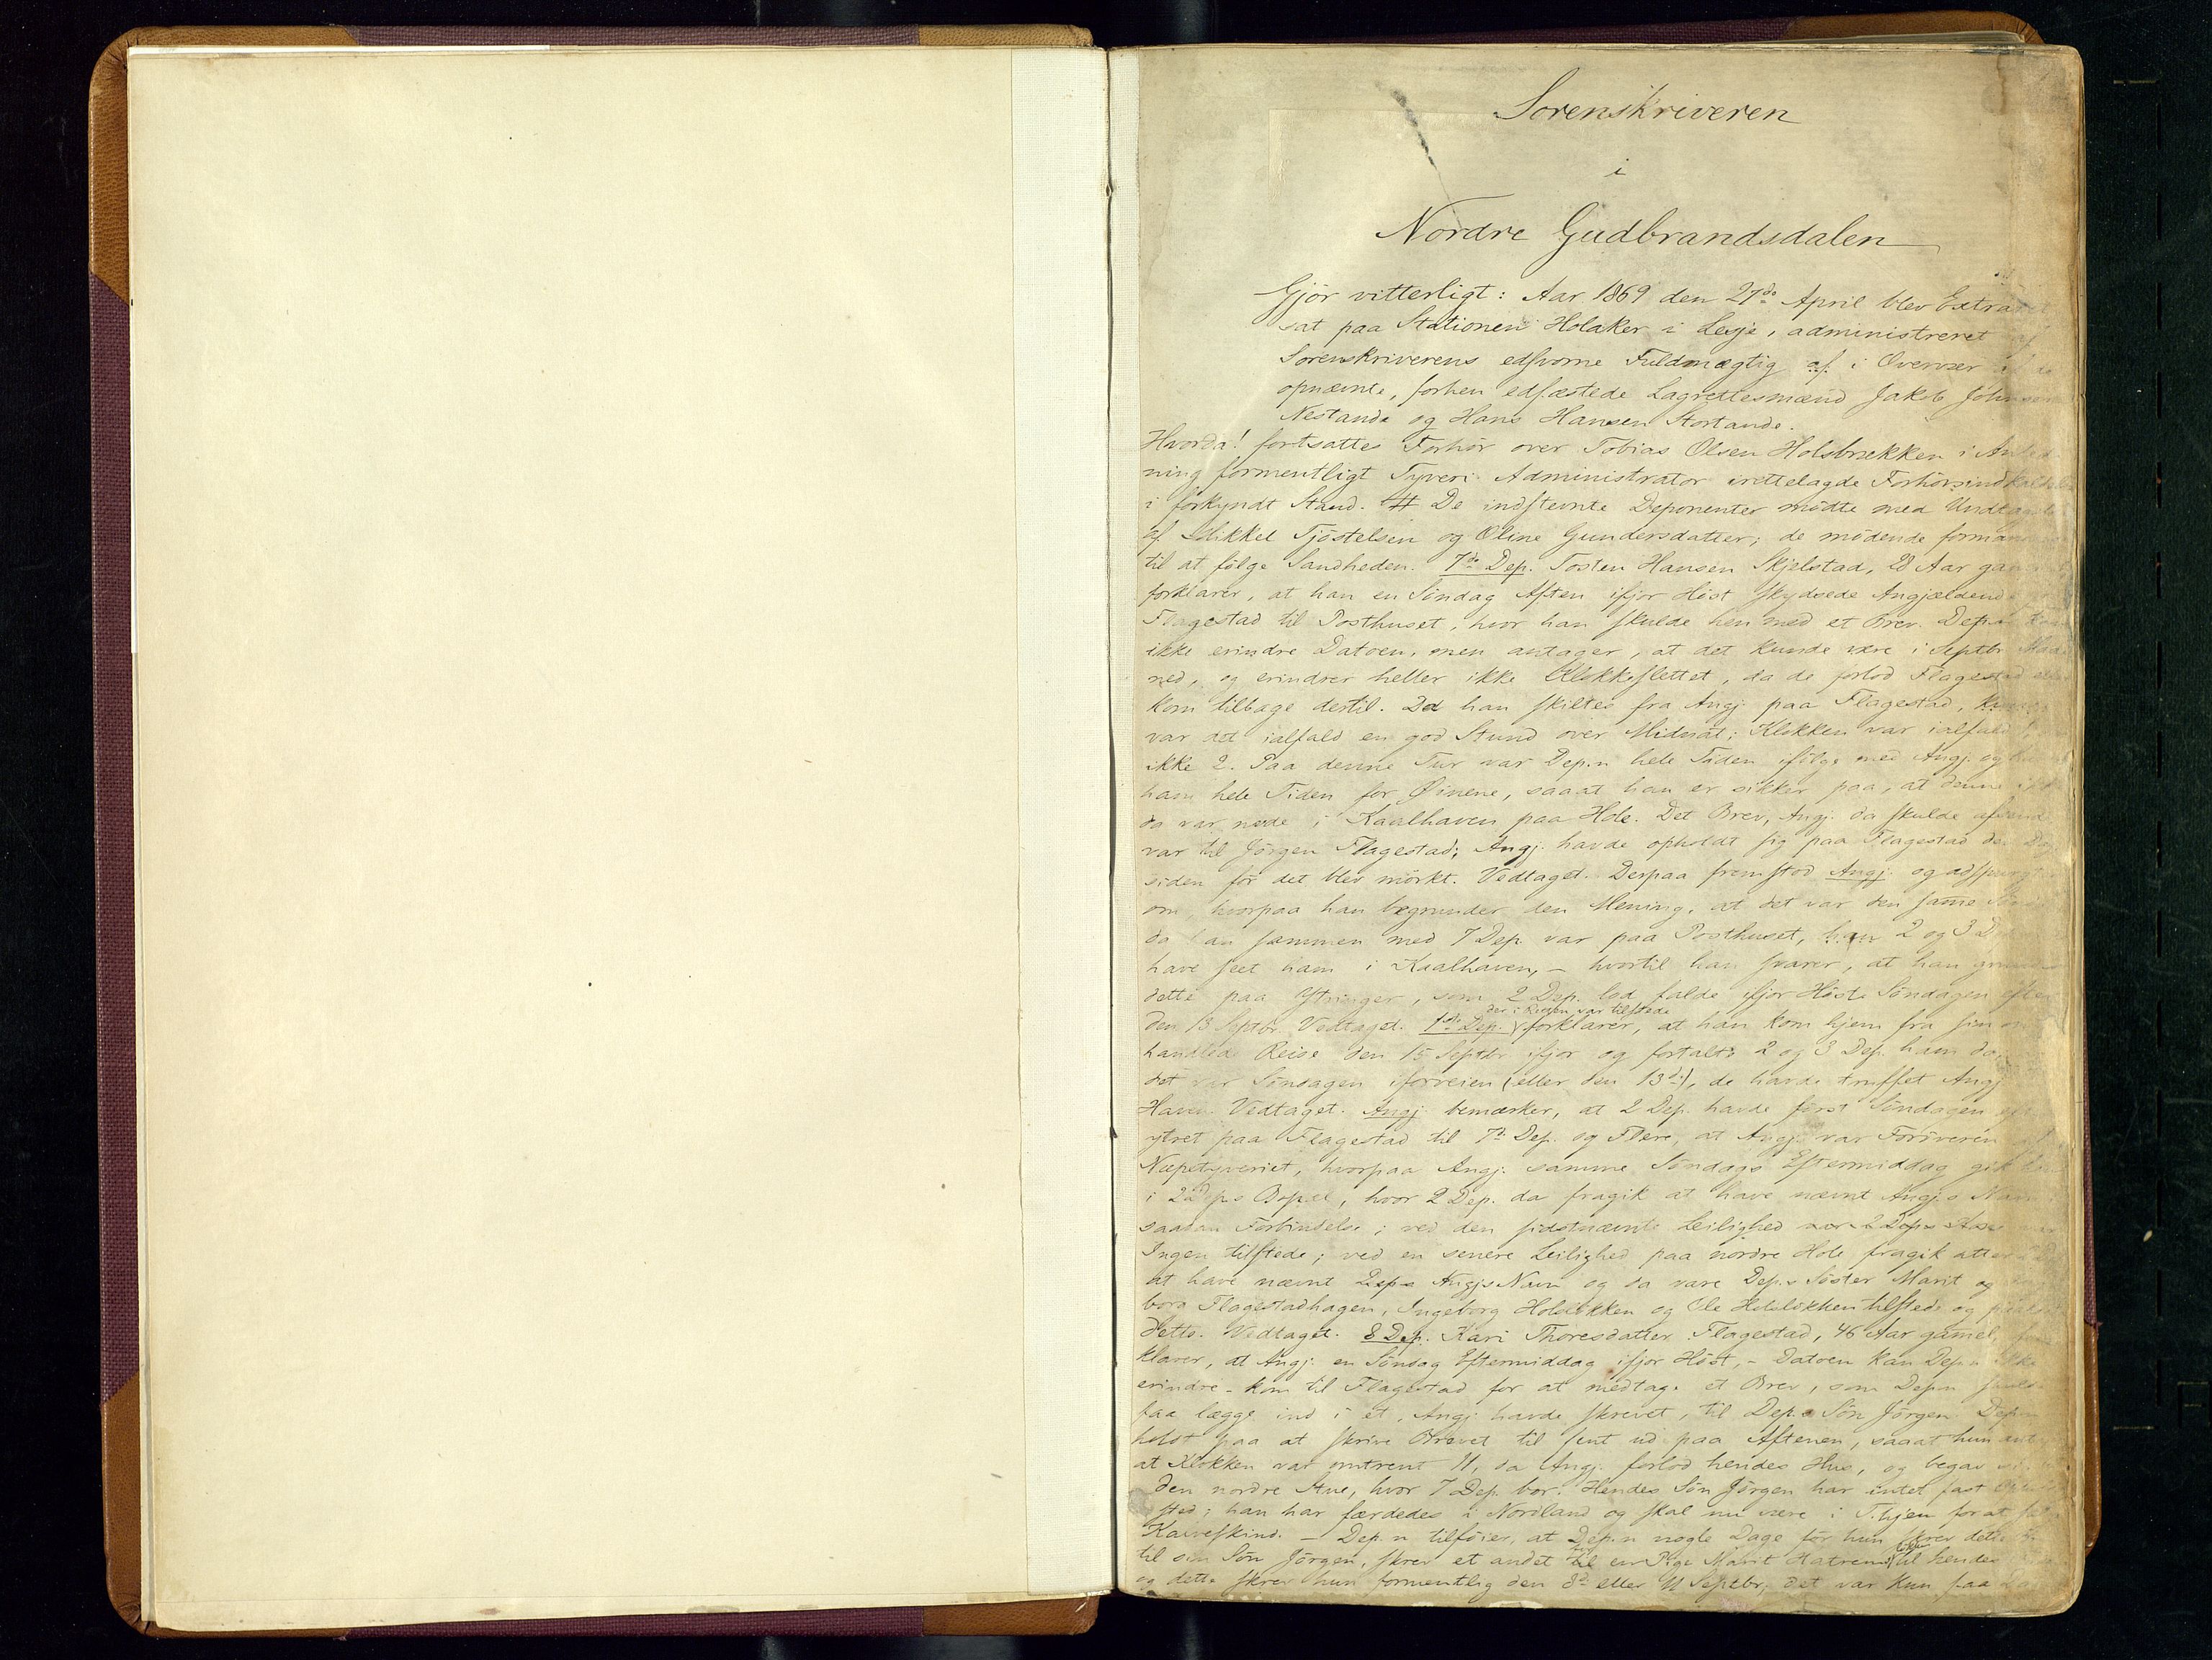 Sorenskriveren
i
Nordre Gudbrandsdalen
Gjör vitterligt: Aar 1869 den 27de April blev Extraret
sat paa Stationen Holaker i Lesje, administreret af
Sorenskriverens edsvorne Fuldmægtig af i Overvær af de
opnævnte, forhen edfæstede Lagrettesmænd Jakob Johnsen
Nestande og Hans Hansen Stortande.
Hvorda! fortsattes Forhör over Tobias Olsen Holsbrækken i Anled
ning formentligt Tyveri. Administrator irettelagde Forhörsindkaldelse
i forkyndt Stand. De indstevnte Deponenter mödte med Undtagelse
af Mikkel Tjöstelsen og Oline Gundersdatter; de mödende formanedes
til at fölge Sandheden. 7de Dep. Tosten Hansen Skjelstad, 28 Aar gammel
forklarer, at han en Söndag Aften ifjor Höst skydsede Angjældende
Flagestad til Posthuset, hvor han skulde hen med et Brev. Dep.n kan
ikke erindre Datoen, men antager, at det kunde være i Septbr Maa
ned, og erindrer heller ikke Klokkeslettet, da de forlod Flagestad eller
kom tilbage dertil. Da han skiltes fra Angj. paa Flagestad,
var det ialfald en god Stund over Midnat; Klokken var ialfald
ikke 2. Paa denne Tur var Dep.n hele Tiden ifölge med Angj. og havde
ham hele Tiden for Öinene, saaat han er sikker paa, at denne ikke
da var nede i Kaalhaven paa Hole. Det Brev, Angj. da skulde afsende
var til Jörgen Flagestad; Angj. havde opholdt sig paa Flagestad den Dag
siden för det blev mörkt. Vedtaget. Derpaa fremstod Angj. og adspurgt
om, hvorpaa han begrunder den Mening, at det var den samme
da han sammen med 7 Dep. var paa Posthuset, 2 og 3 D
have seet ham i Kaalhaven, – hvortil han svarer, at han grunder
dette paa Ytringer, som 2 Dep. lod falde ifjor Höst Söndagen efter
den 13 Septbr. Vedtaget. 1ste Dep. der i Retten var tilstede forklarer, at han kom hjem fra sin om
handlede Reise den 15 Septbr ifjor og fortalte 2 og 3 Dep. ham da,
det var Söndagen iforveien (eller den 13de), de havde truffet Angj
Haven. Vedtaget. Angj. bemærker, at 2 Dep. havde först Söndagen
ytret paa Flagestad til 7de Dep. og Flere, at Angj. var Foröveren
Næpetyveriet, hvorpaa Angj. samme Söndags Eftermiddag gik
i 2 Dep.s Bopæl, hvor 2 Dep. da fragik at have nævnt Angj.s Navn
saadan Forbindelse; ved den sidstnævnte Leilighed var
Ingen tilstede; ved en senere Leilighed paa nordre Hole fragik atter
at have nævnt Angjs Navn og da vare Dep.s Söster Marit og
borg Flagestadhagen, Ingeborg Holslökken og Ole Holslökken tilstede og
dette. Vedtaget. 8 Dep. Kari Thoresdatter Flagestad, 46 Aar gamel, for
klarer, at Angj. en Söndag Eftermiddag ifjor Höst, – Datoen kan Dep.n ikke
erindre – kom til Flagestad for at medtage et Brev, som Dep.n
faa lægge ind i et, Angj. havde skrevet, til Dep.s Sön Jörgen. Dep.n
holdt paa at skrive Brevet til sent ud paa Aftenen, saaat hun
at Klokken var omtrent 11, da Angj. forlod hendes Hus, og begav
den nordre Stue, hvor 7 Dep. bor. Hendes Sön Jörgen har intet fast
sted; han har færdedes i Nordland og skal nu være i T.hjem for at
Kalveskind. – Dep.n tilföier, at Dep.n nogle Dage för hun skrev dette
til sin Sön Jörgen, skrev et andet til en Pige Marit Hatrem til hendes
og dette skrev hun formentlig den 8de eller 11 Septbr, det var kun paa